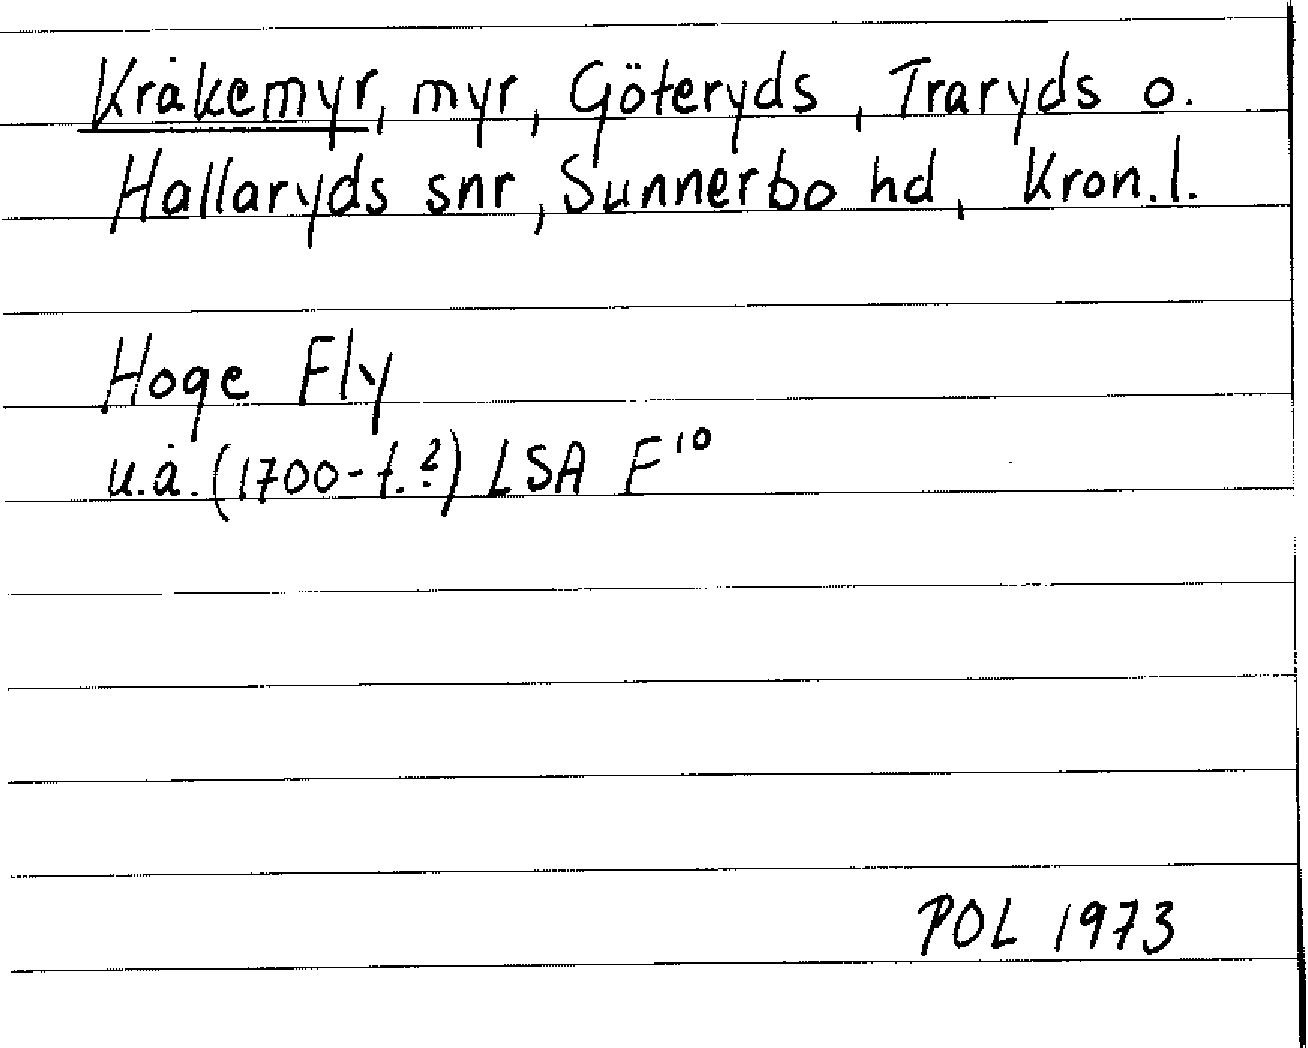 Kråkemyr, myr, Göteryds, Traryds o.
Hallaryds snr, Sunnerbo hd, Kron.l.
Hoge Fly
u.å. (1700-t.?) LSA F¹⁰
POL 1973